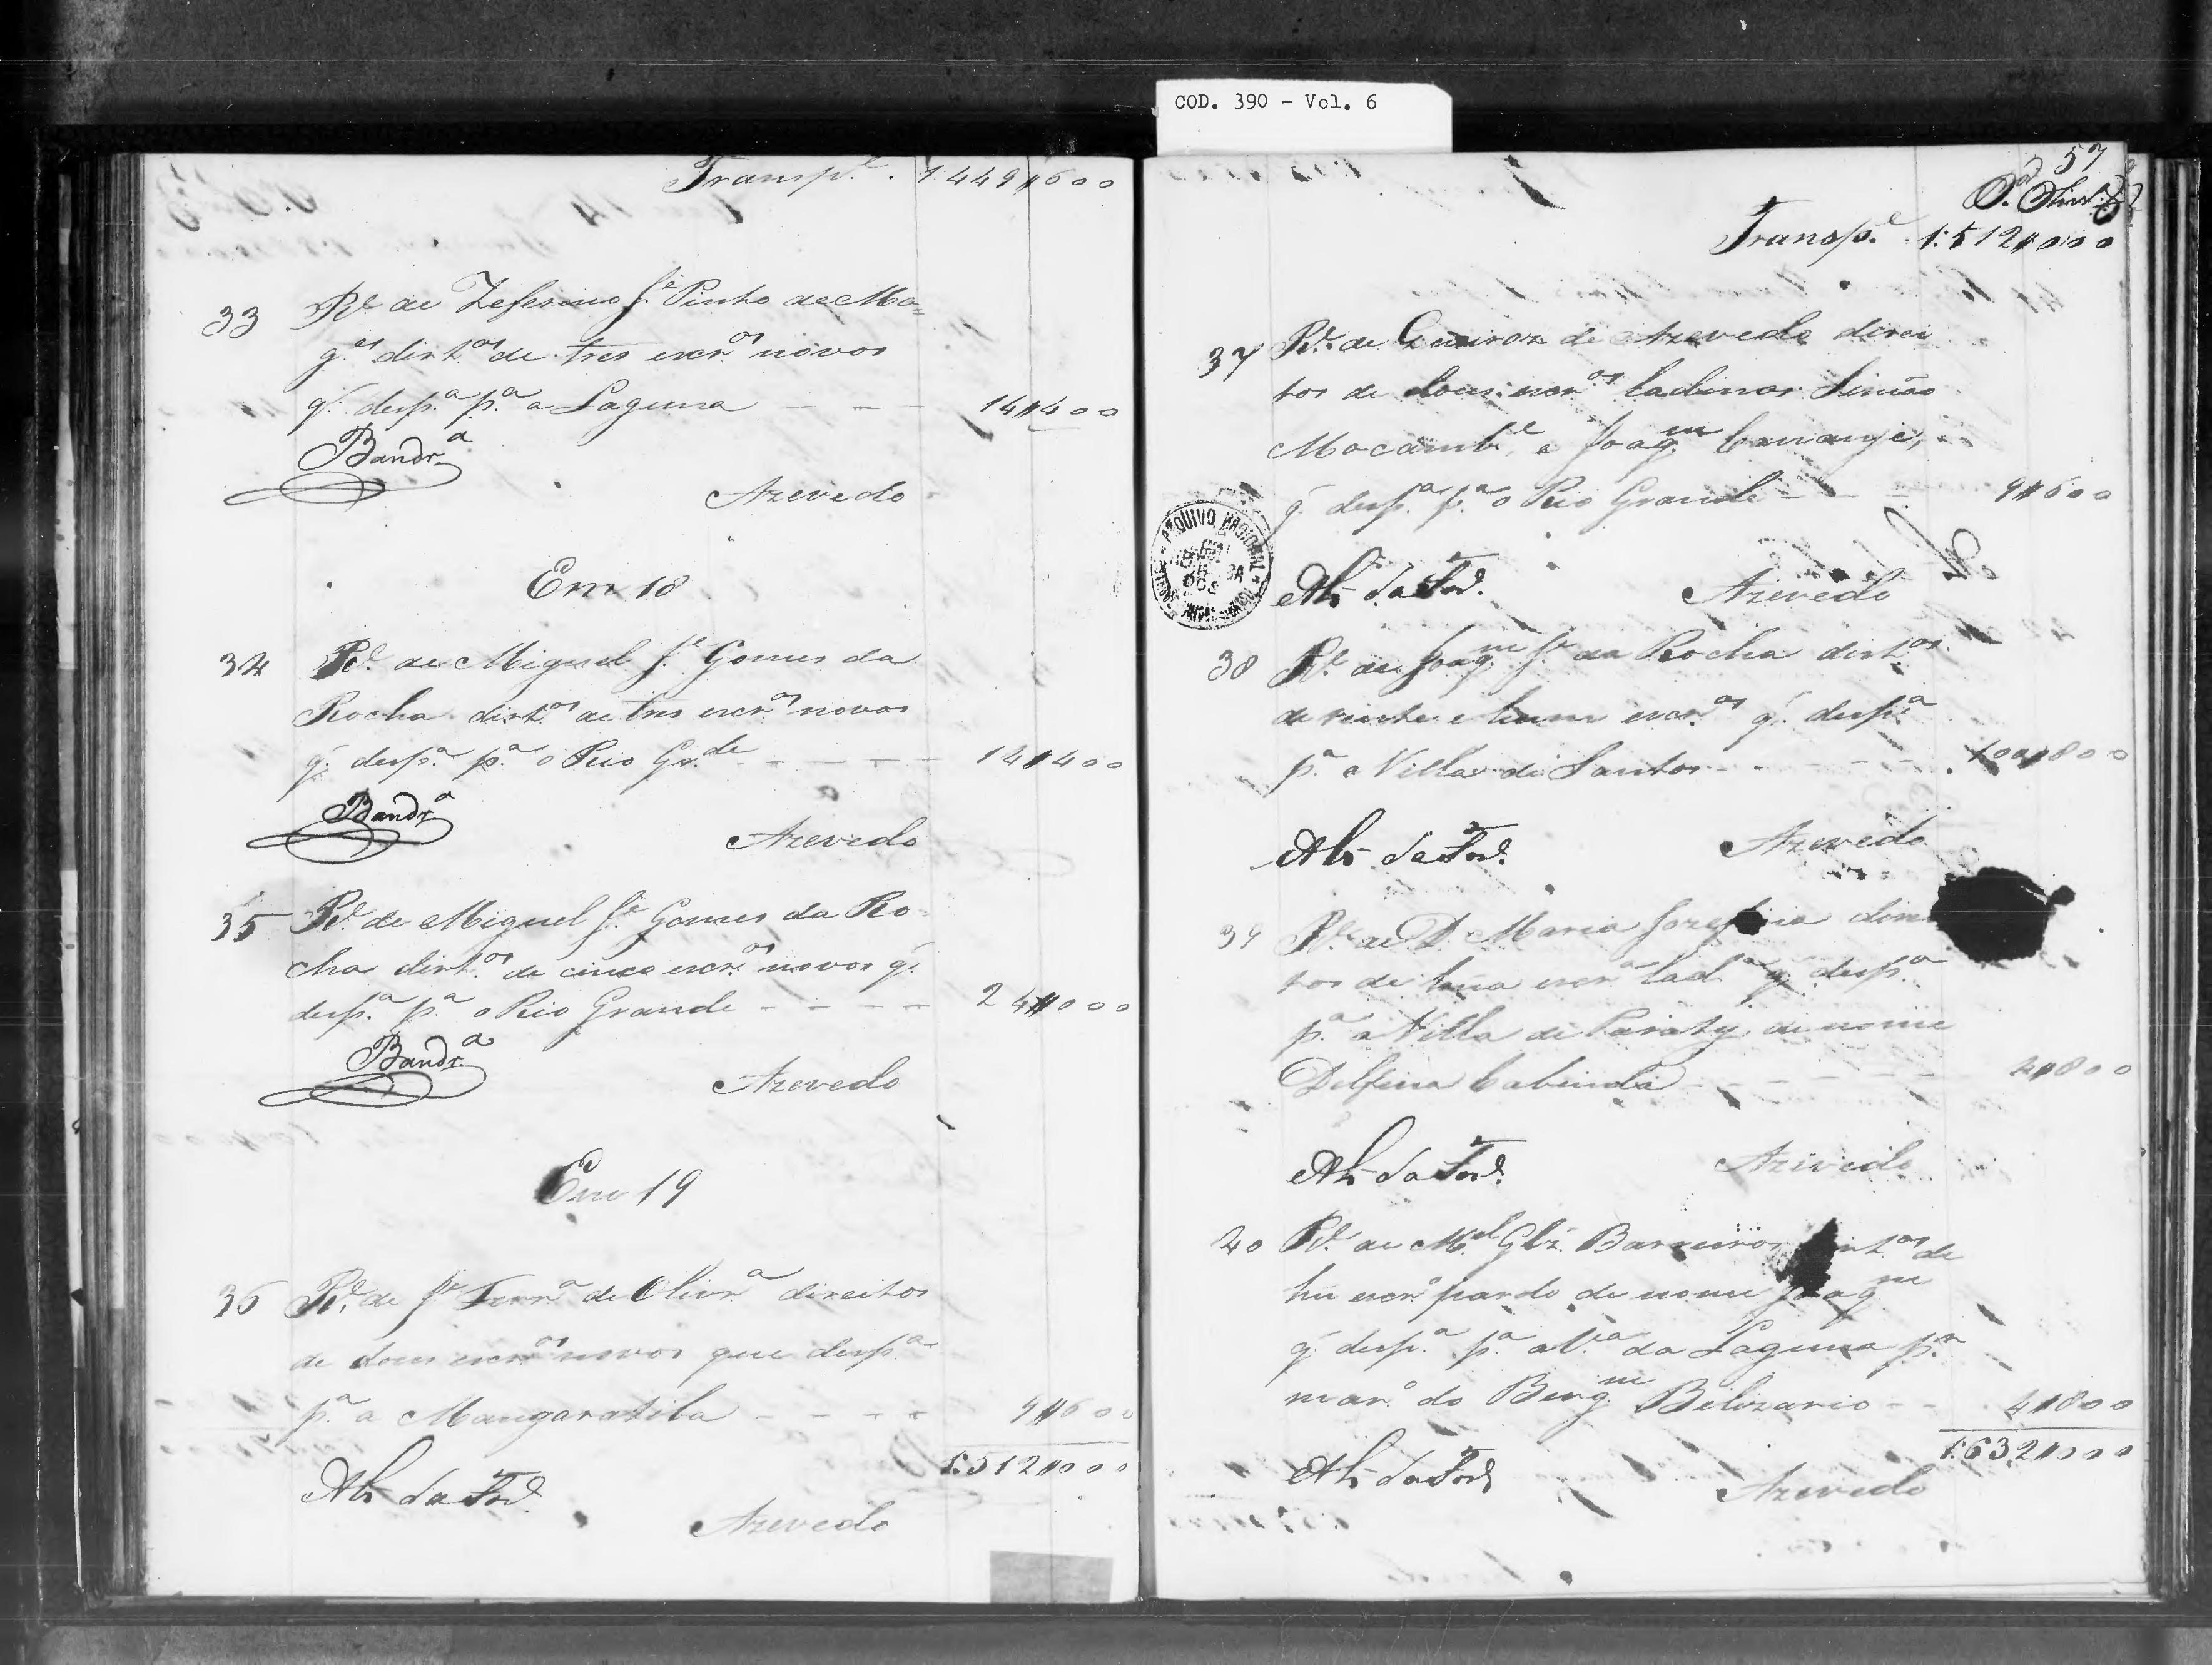 COD. 390 - Vol. 6
Transp.e 1:449$600
33 R.e de Zeferino J.e Pinto de Ma=
g.es dirt.os de tres escr.os novos
q' desp.a p.a a Laguna - - - 14$400
Bandr.a
Azevedo
Em 18
34 R.e de Miguel J.e Gomes da
Rocha dirt.os de tres escr.os novos
q' desp.a p.a o Rio Gr.de - - - - - 14$400
Bandr.a
Azevedo
35 R.e de Miguel J.e Gomes da Ro=
cha dirt.os de cinco escr.os novos q'
desp.a p.a o Rio Grande - - - - 24$000
Bandr.a
Azevedo
Em 19
36 R.e de J.e Ferr.a de Olivr.a direitos
de dous escr.os novos que desp.a
p.a a Mangaratiba - - - - 9$600
1:512$000
Azevedo
57
Transp.e 1:512$000
37 R.e de Queiroz de Azevedo direi
tos de dous escr.os ladinos Simão
Mocamb.e, e Joaq.m Cananje,
q' desp.a p.a o Rio Grande - - - 9$600
ARQUIVO NACIONAL
Azevedo
38 R.e de Joaq.m J.e da Rocha dirt.os
de vinte e hum escr.os q' desp.a
p.a a Villa de Santos - - - - - 100$800
Azevedo
39 R.e de D. Maria Jozefina direi
tos de hũa escr.a lad.a q' desp.a
p.a a Villa de Paraty, de nome
Delfina Cabinda - - - - - - 4$800
Azevedo
40 R.e de M.el Glz' Barreiros dirt.os de
hũ escr.o pardo de nome Joaq.m
q' desp.a p.a a V.a da Laguna p.r
mar. do Berg.m Belizario - - 4$800
1:632$000
Azevedo